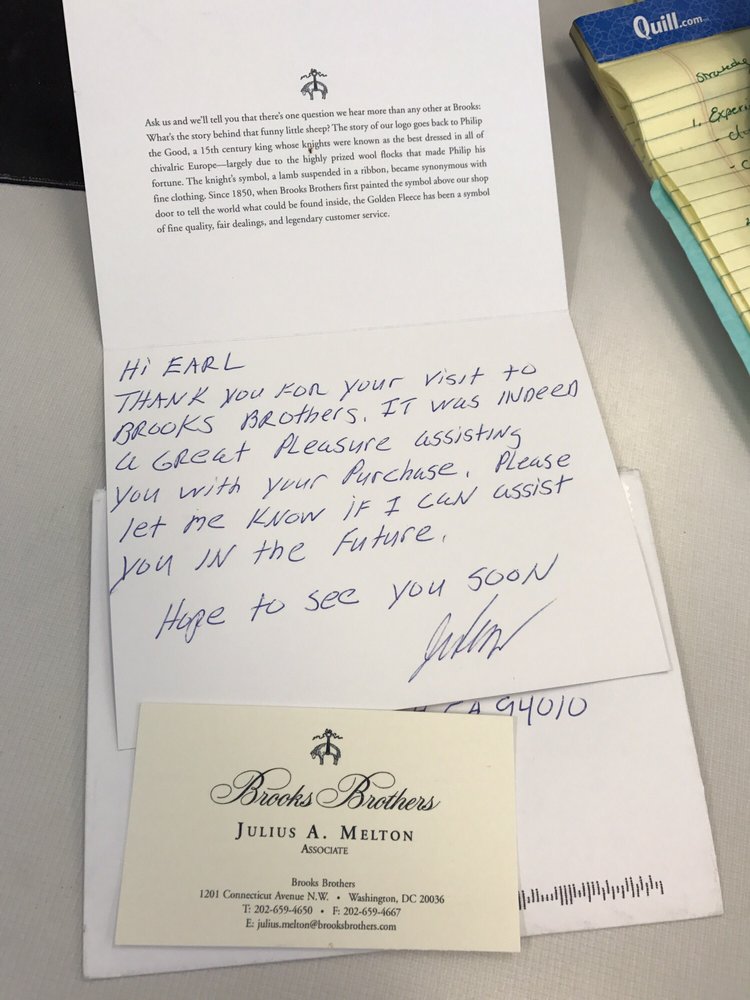 Quill.com
1. Experi
Ask us and we'll tell you that there's one question we hear more than any other at Brooks:
What's the story behind that funny little sheep? The story of our logo goes back to Philip
the Good, a 15th century king whose knights were known as the best dressed in all of
chivalric Europe—largely due to the highly prized wool flocks that made Philip his
fortune. The knight's symbol, a lamb suspended in a ribbon, became synonymous with
fine clothing. Since 1850, when Brooks Brothers first painted the symbol above our shop
door to tell the world what could be found inside, the Golden Fleece has been a symbol
of fine quality, fair dealings, and legendary customer service.
Hi EARL
THANK you FOR your visit to
BROOKS BROthers. IT was INDeeD
a GREAt PLeasuRe assisting
you with your Purchase. Please
let me KNOW if I CAN assist
you IN the Future.
Hope to see you SOON
CA 94010
Brooks Brothers
JULIUS A. MELTON
ASSOCIATE
Brooks Brothers
1201 Connecticut Avenue N.W. • Washington, DC 20036
T: 202-659-4650 • F: 202-659-4667
E: julius.melton@brooksbrothers.com